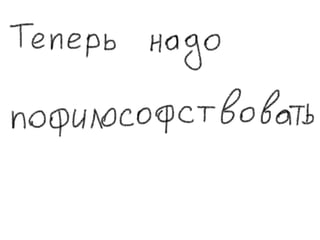 Теперь надо
пофилософствовать